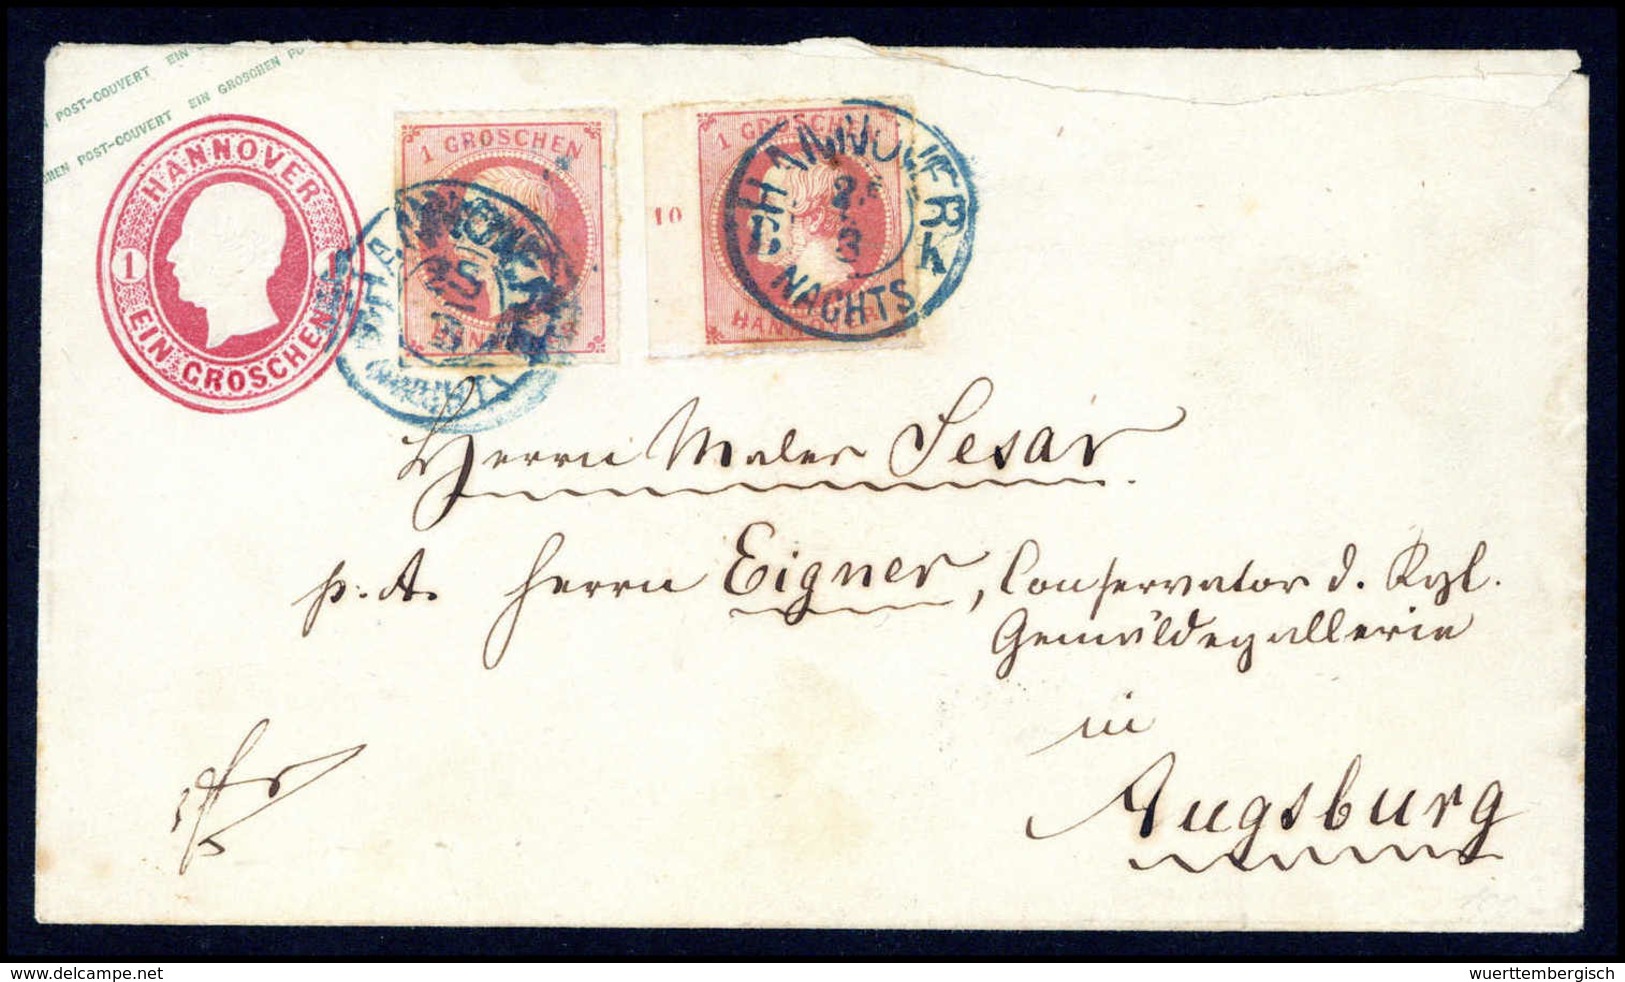 POST-COUVERT EIN
POST-COUVERT EIN GROSCHEN PO
HEN POST-COUVERT
HANNOVER
1 1
EIN GROSCHEN
1 GROSCHEN
HANNOVER
3
10
1 GROSCHEN
HANNOVER
HANNOVER
3
NACHTS
Herrn Maler Sesar
p. A. Herrn Eigner, Conservator d. Kgl.
Gemäldegallerie
in
Augsburg
delcampe.net
wuerttembergisch